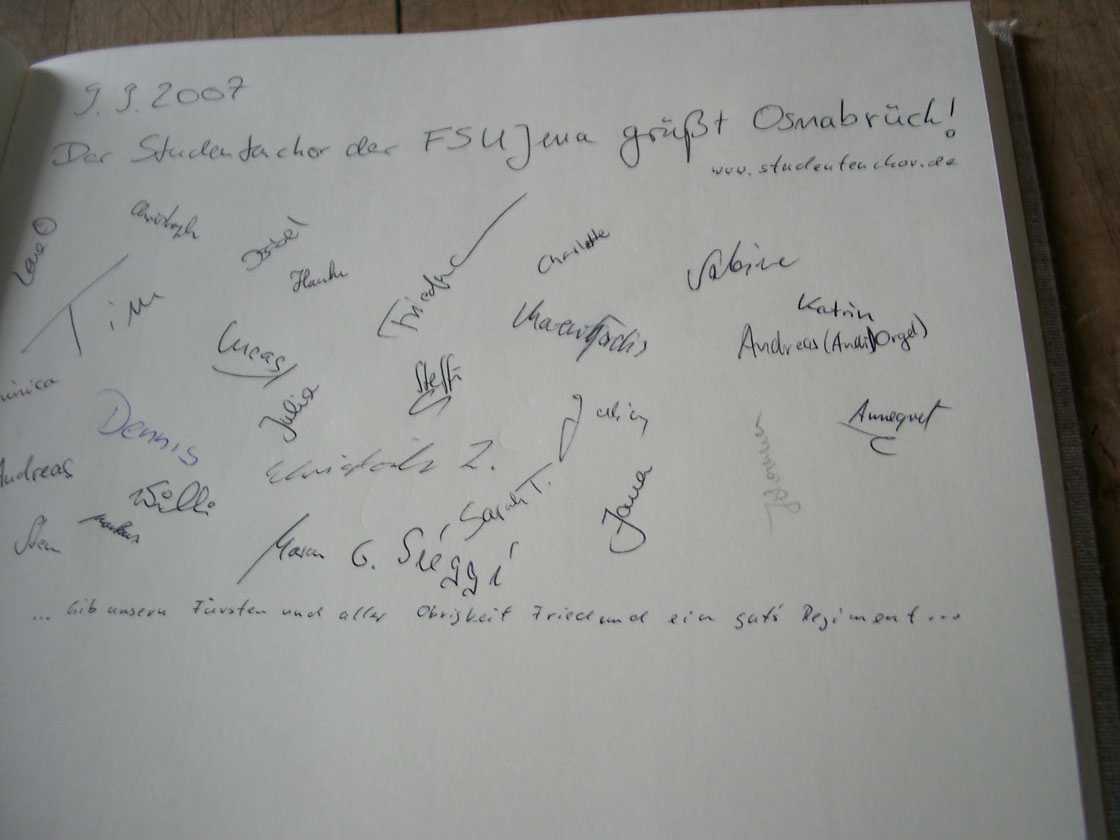 9.9.2007
Der Studentenchor der FSU Jena grüßt Osnabrück!
www.studentenchor.de
Lena
Christoph
Isabel
Hauke
Charlotte
Sabine
Tim
Katrin
Andreas (Andi) Orgel)
Lucas
Steffi
Julia
Dennis
Annegret
Andreas
Willi
Christoph Z.
Sarah T.
Jana
Johanna
Sven
Markus
Maren G.
Sieggi
... Gib unsern Fürsten und aller Obrigkeit Fried und ein gut's Regiment ...